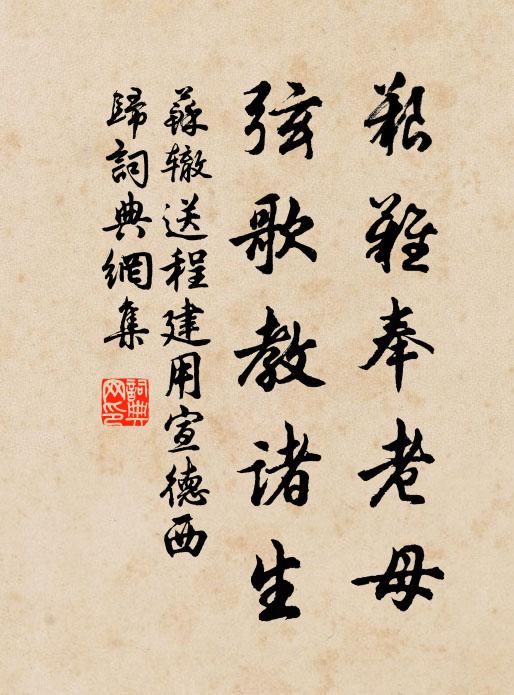 艱難奉老母
弦歌教诸生
蘇辙送程建用宣德西
歸詞典網集
詞典
网印